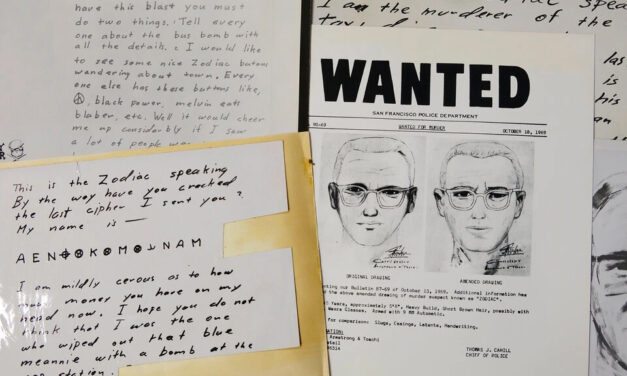 have this blast you must
do two things. Tell every
one about the bus bomb with
all the details. 2 I would like
to see some nice Zodiac butons
wandering about town. Every
one else has these buttons like,
☮, black power, melvin eats
blaber, etc. Well it would cheer
me up considerbly if I saw
a lot of people
This is the Zodiac speaking
By the way have you cracked
the last cipher I sent you?
My name is —
A E N ⊕ K M N A M
I am mildly cerous as to how
much money you have on my
head now. I hope you do not
think that I was the one
who wiped out that blue
meannie with a bomb at the
station.
I am the murderer of the
WANTED
SAN FRANCISCO POLICE DEPARTMENT
WANTED FOR MURDER
OCTOBER 18, 1969
ORIGINAL DRAWING
AMENDED DRAWING
our Bulletin 87-69 of October 13, 1969. Additional information has
the above amended drawing of murder suspect known as "ZODIAC".
Years, approximately 5'8", Heavy Build, Short Brown Hair, possibly with
Wears Glasses. Armed with 9 MM Automatic.
for comparison: Slugs, Casings, Latents, Handwriting.
Armstrong & Toschi
THOMAS J. CAHILL
CHIEF OF POLICE
last
is
his